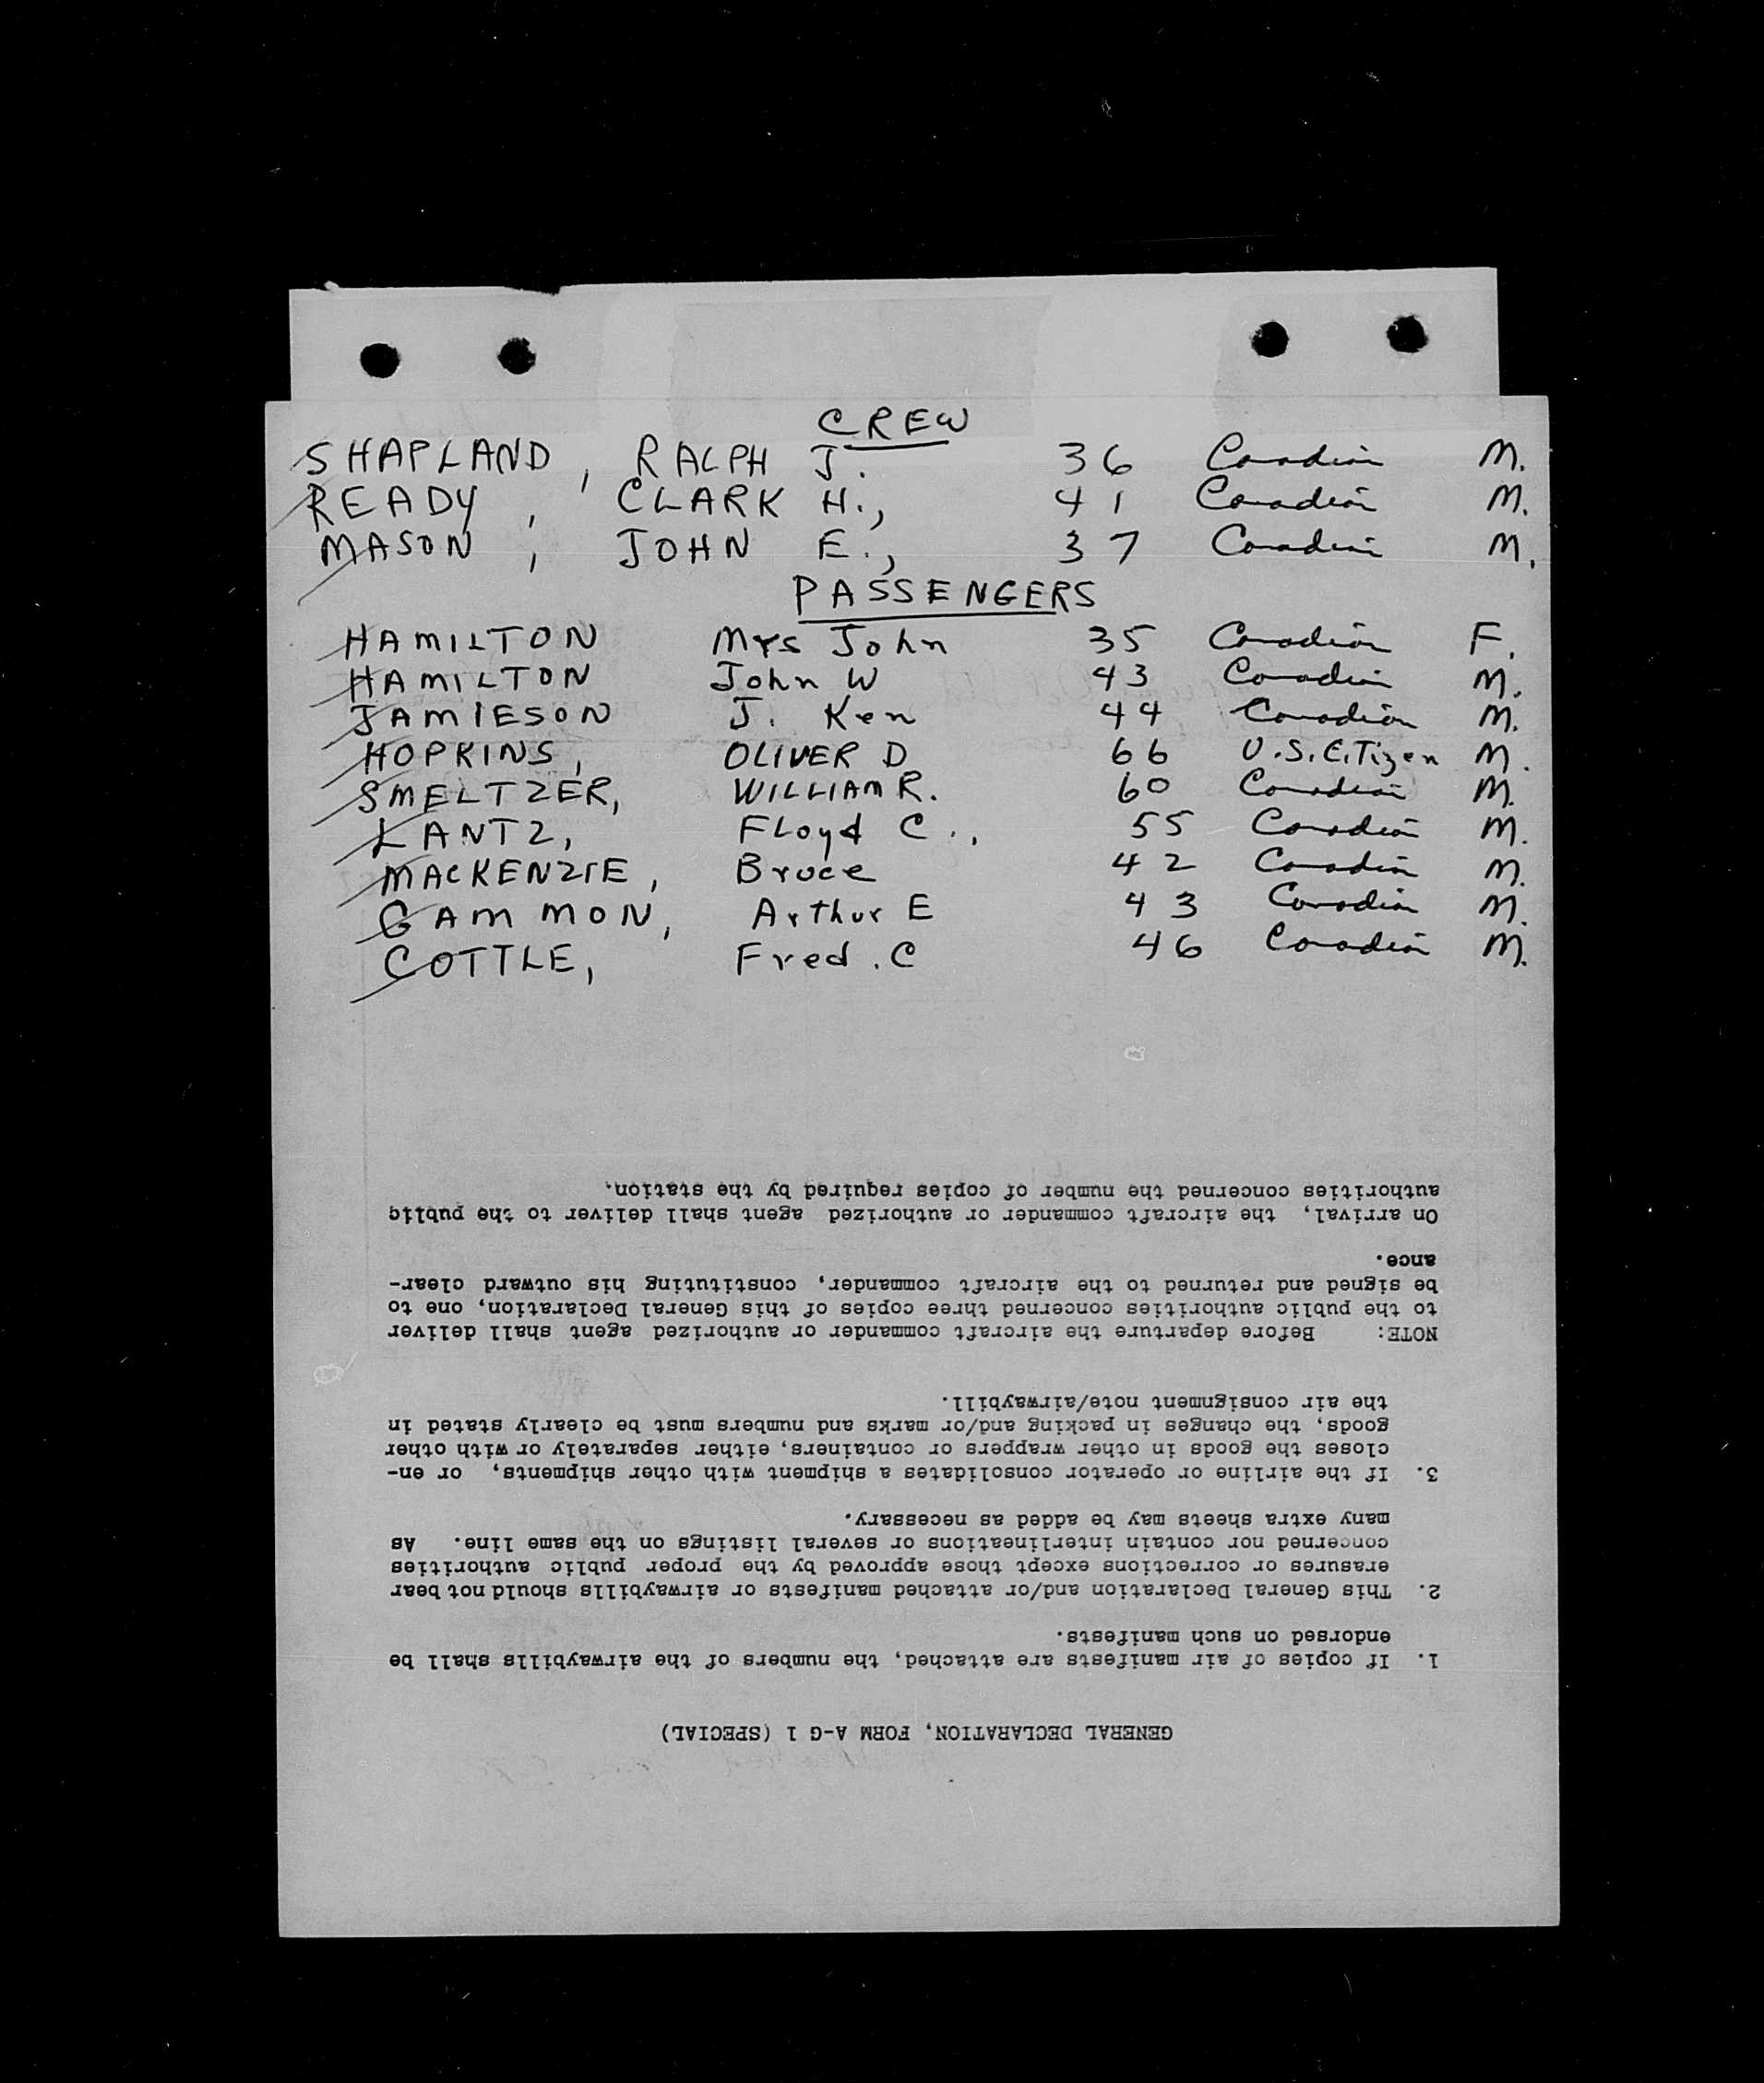 CREW
SHAPLAND, RALPH J. 36 Canadian M.
READY, CLARK H., 41 Canadian M.
MASON, JOHN E., 37 Canadian M.
PASSENGERS
HAMILTON Mrs John 35 Canadian F.
HAMILTON John W 43 Canadian M.
JAMIESON J. Ken 44 Canadian M.
HOPKINS, OLIVER D 66 U.S. CiTizen M.
SMELTZER, WILLIAM R. 60 Canadian M.
LANTZ, FLoyd C., 55 Canadian M.
MACKENZIE, Bruce 42 Canadian M.
GAMMON, Arthur E 43 Canadian M.
COTTLE, Fred. C 46 Canadian M.
GENERAL DECLARATION, FORM A-G 1 (SPECIAL)
1. If copies of air manifests are attached, the numbers of the airwaybills shall be
endorsed on such manifests.
2. This General Declaration and/or attached manifests or airwaybills should not bear
erasures or corrections except those approved by the proper public authorities
concerned nor contain interlineations or several listings on the same line. As
many extra sheets may be added as necessary.
3. If the airline or operator consolidates a shipment with other shipments, or en-
closes the goods in other wrappers or containers, either separately or with other
goods, the changes in packing and/or marks and numbers must be clearly stated in
the air consignment note/airwaybill.
NOTE: Before departure the aircraft commander or authorized agent shall deliver
to the public authorities concerned three copies of this General Declaration, one to
be signed and returned to the aircraft commander, constituting his outward clear-
ance.
On arrival, the aircraft commander or authorized agent shall deliver to the public
authorities concerned the number of copies required by the station.